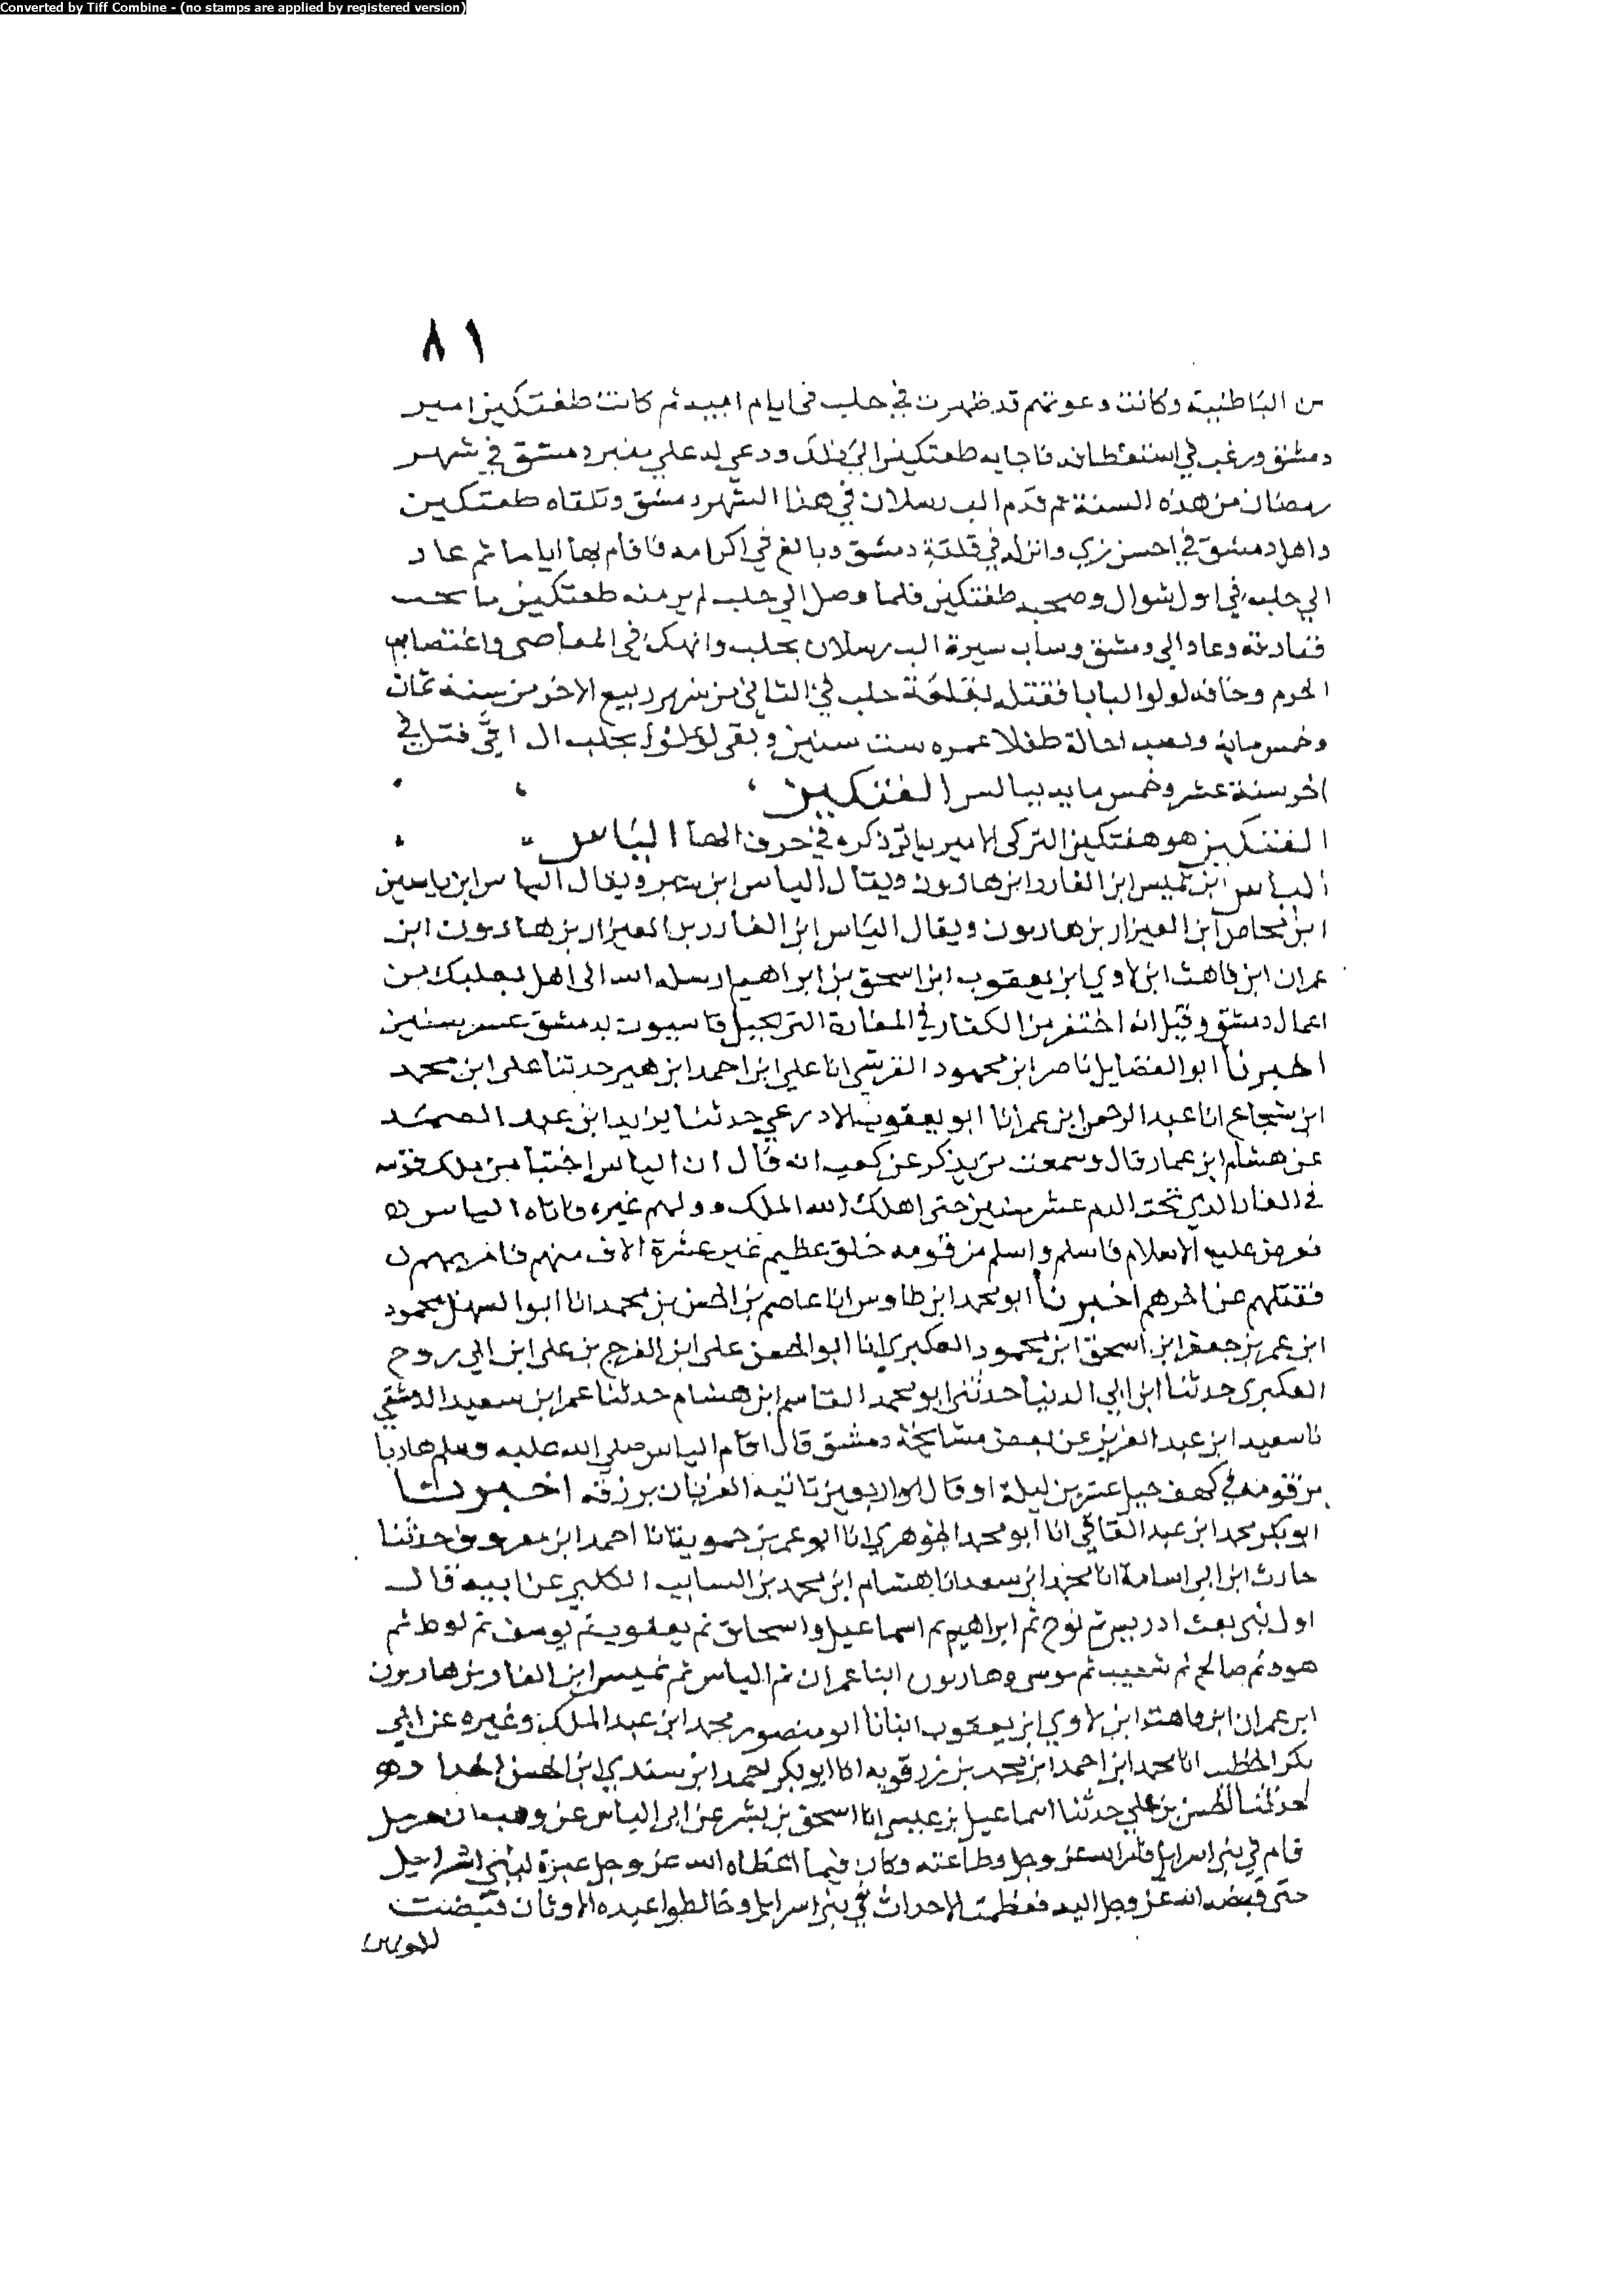 Converted by Tiff Combine - (no stamps are applied by registered version)
٨١
من الباطنية وكانت دعوتهم قد ظهرت في حلب في ايام ابيه ثم كاتب طغتكين امير
دمشق ورغب في استعطافه فاجابه طغتكين الى ذلك ودعي له علي منبر دمشق في شهر
رمضان من هذه السنة ثم قدم الب رسلان في هذا الشهر دمشق وتلقاه طغتكين
واهل دمشق في احسن زي وانزله في قلعة دمشق وبالغ في اكرامه فاقام بها اياما ثم عاد
الي حلب في اول شوال وصحبه طغتكين فلما وصل الي حلب لم ير منه طغتكين ما يحب
ففارقه وعاد الي دمشق وساب سيرة الب رسلان بحلب وانهمك في المعاصي واغتصابه
الحرم وخافه لولو البابا فقتله بقلعة حلب في الثاني من شهر ربيع الاخر من سنة ثمان
وخمس ماية ونصب اخا له طفلا عمره ست سنين وبقى لولوا بحلب الى ان قتل في
اخر سنة عشر وخمس مايه ببالس الفتكين
الفتكين هو هفتكين التركى الامير ياتي ذكره في حرف الها الياس
الياس ابن تميس ابن الغارد ابن هارون ويقال الياس ابن ويقال الياس ابن ياسين
ابن ابن العيزار بن هارون ويقال الياس ابن الغارد بن العيزار بن هارون ابن
عمران ابن قاهث ابن لاوي ابن يعقوب ابن اسحق بن ابراهيم ارسله الله الى اهل بعلبك من
اعمال دمشق وقيل انه اختفى من الكفار في المغارة التي بجبل قاسيون بدمشق عشر سنين
اخبرنا ابو الفضايل ناصر ابن محمود القرشي انا علي ابن احمد ابن حدثنا على ابن محمد
ابن شجاع انا عبد الرحمن ابن عمر انا ابو يعقوب الادرعي حدثنا يزيد ابن عبد الصمد
عن هشام ابن عمار قال وسمعت من يذكر عن كعب انه قال ان الياس اختبا من ملك قومه
في الغار الذي تحت الدم عشر سنين حتى اهلك الله الملك وولهم غيره فاتاه الياس
فعرض عليه الاسلام فاسلم واسلم من قومه خلق عظيم غير عشرة الاف منهم فامر بهم
فقتلهم عن اخرهم اخبرنا ابو محمد ابن طاوس انا عاصم بن الحسن بن محمد انا ابو السهل محمود
ابن عمر بن جعفر ابن اسحق ابن محمود العكبري انا ابو الحسن على ابن الفرج بن على ابن ابي روح
العكبرى حدثنا ابن ابي الدنيا حدثنى ابو محمد القاسم ابن هشام حدثنا عمر ابن سعيد الدمشقي
نا سعيد ابن عبد العزيز عن بعض مشايخة دمشق قال اقام الياس صلى الله عليه وسلم هاربا
من قومه في كهف جبل عشرين ليلة او قال اربعين تاتيه الغربان برزقه اخبرنا
ابو بكر محمد ابن عبد الباقي انا ابو محمد الجوهري انا ابو عمر بن حمويه انا احمد ابن معروف حدثنا
حارث ابن ابي اسامة انا محمد ابن سعد انا هشام ابن محمد بن السايب الكلبي عن ابيه قال
اول نبى بعث ادريس ثم نوح ثم ابراهيم ثم اسماعيل واسحاق ثم يعقوب ثم يوسف ثم لوط ثم
هود ثم صالح ثم شعيب ثم موسى وهارون ابنا عمران ثم الياس ثم تميس ابن الغارد بن هارون
ابن عمران ابن قاهث ابن لاوي ابن يعقوب انبانا ابو منصور محمد ابن عبد الملك وغيره عن ابي
بكر الخطيب انا محمد ابن احمد ابن محمد بن رزقويه انا ابو بكر احمد ابن سندي ابن الحسن
حدثنا الحسن بن علي حدثنا اسماعيل بن عيسى انا اسحق بن بشر عن الياس عن وهب
قام في بني اسرايل بامر الله عز وجل وطاعته وكان فيما اعطاه الله عز وجل عبرة لبني اسرايل
حتى قبضه الله عز وجل اليه فعظمت الاحداث في بني اسرايل وخالطوا عبدة الاوثان فتيضنت